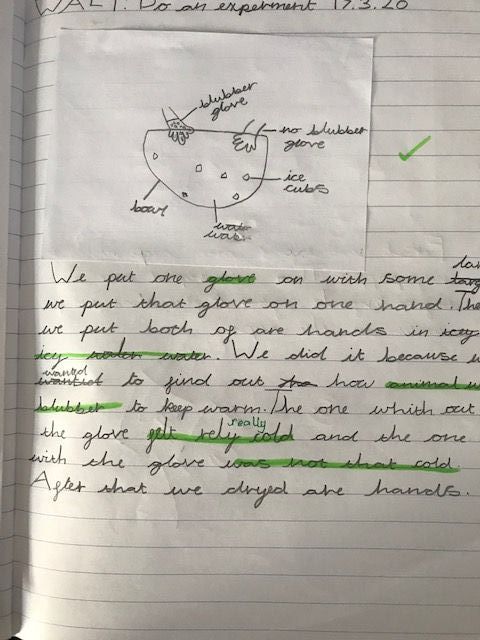 WALT: Do an experment 17.3.20
blubber
glove
no blubber
glove
ice
cubs
bowl
water
We put one glove on with some
we put that glove on one hand. The
we put both of are hands in icy
icy water water. We did it because
wanted
to find out how animal
blubber to keep warm. The one whith out
really
the glove felt rely cold and the one
with the glove was not that cold.
After that we dryed are hands.